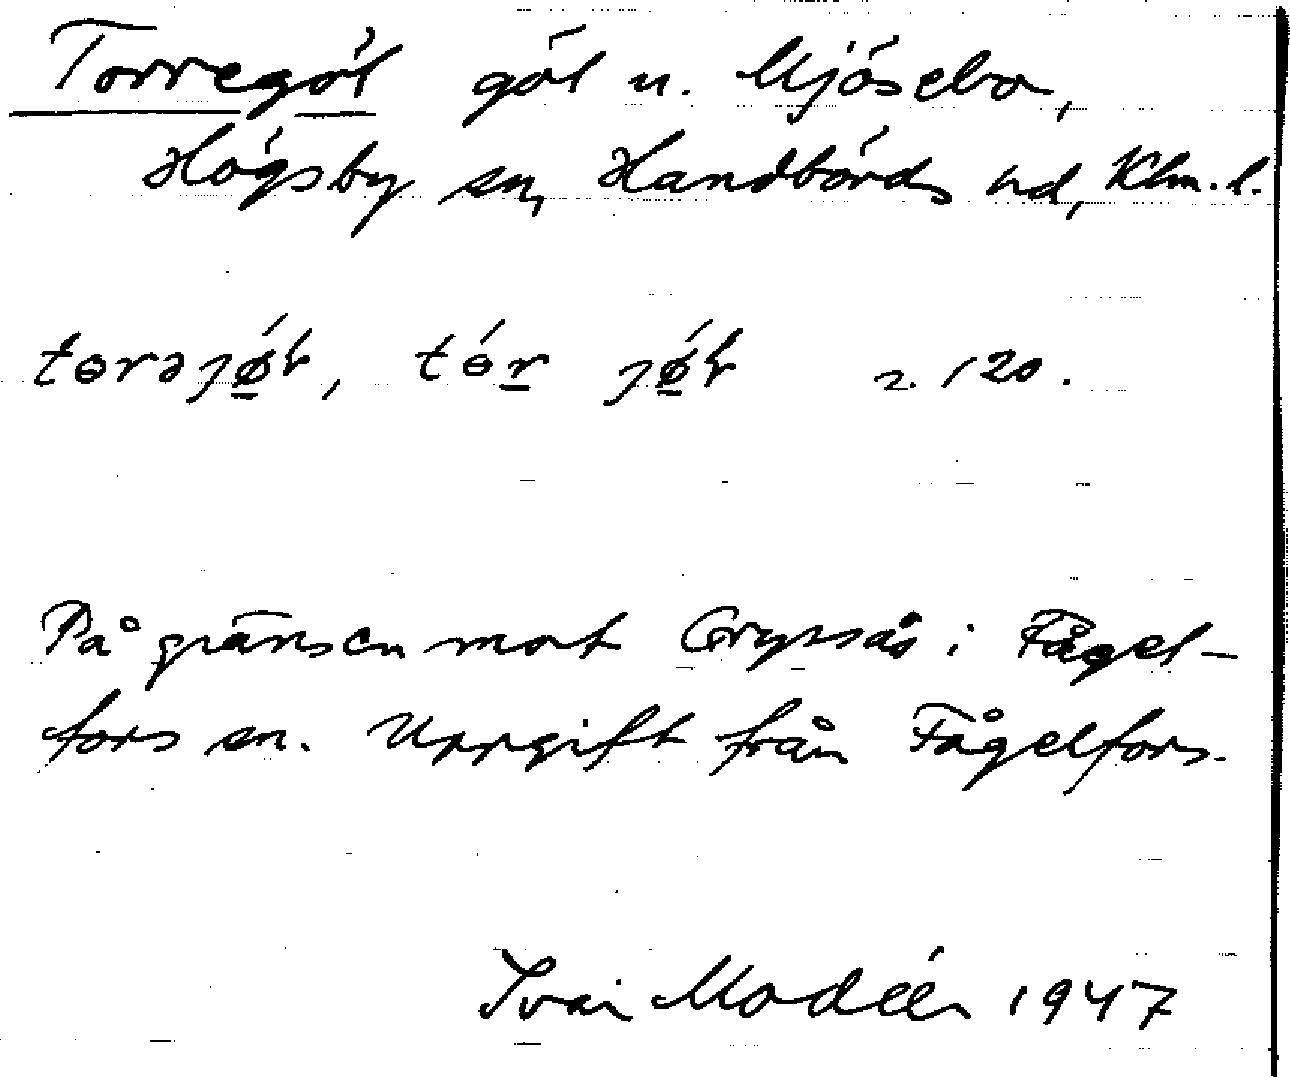 Torregöl göl u. Mjösebo,
Högsby sn, Handbörds hd, Klm. l.
tɵrəȷǿ̱ł, tɵ́ṟ ȷǿ̱ł 2. 120.
På gränsen mot Gryssås i Fågel-
fors sn. Uppgift från Fågelfors.
Ivar Modéer 1947